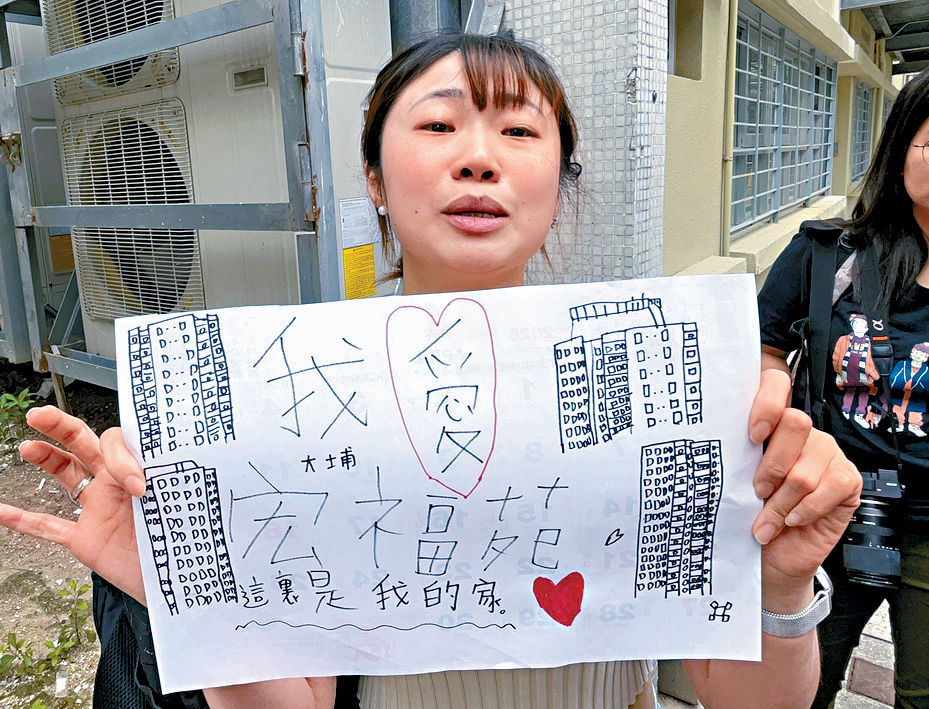 我愛
大埔
宏福苑
這裏是我的家。